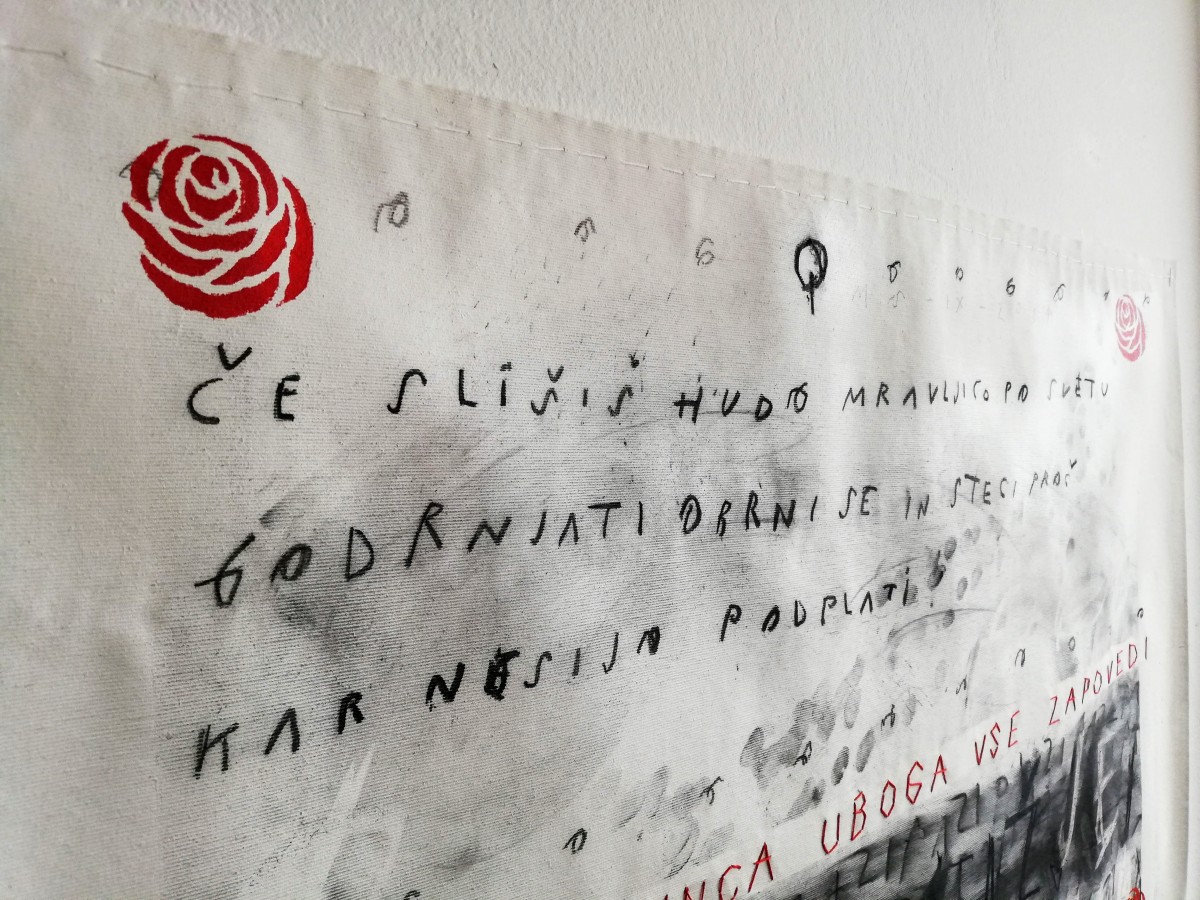 ČE SLIŠIŠ HUDO MRAVLJICO PO SVETU
GODRNJATI OBRNI SE IN STECI PROČ
KAR NESIJO PODPLATI
UBOGA VSE ZAPOVEDI